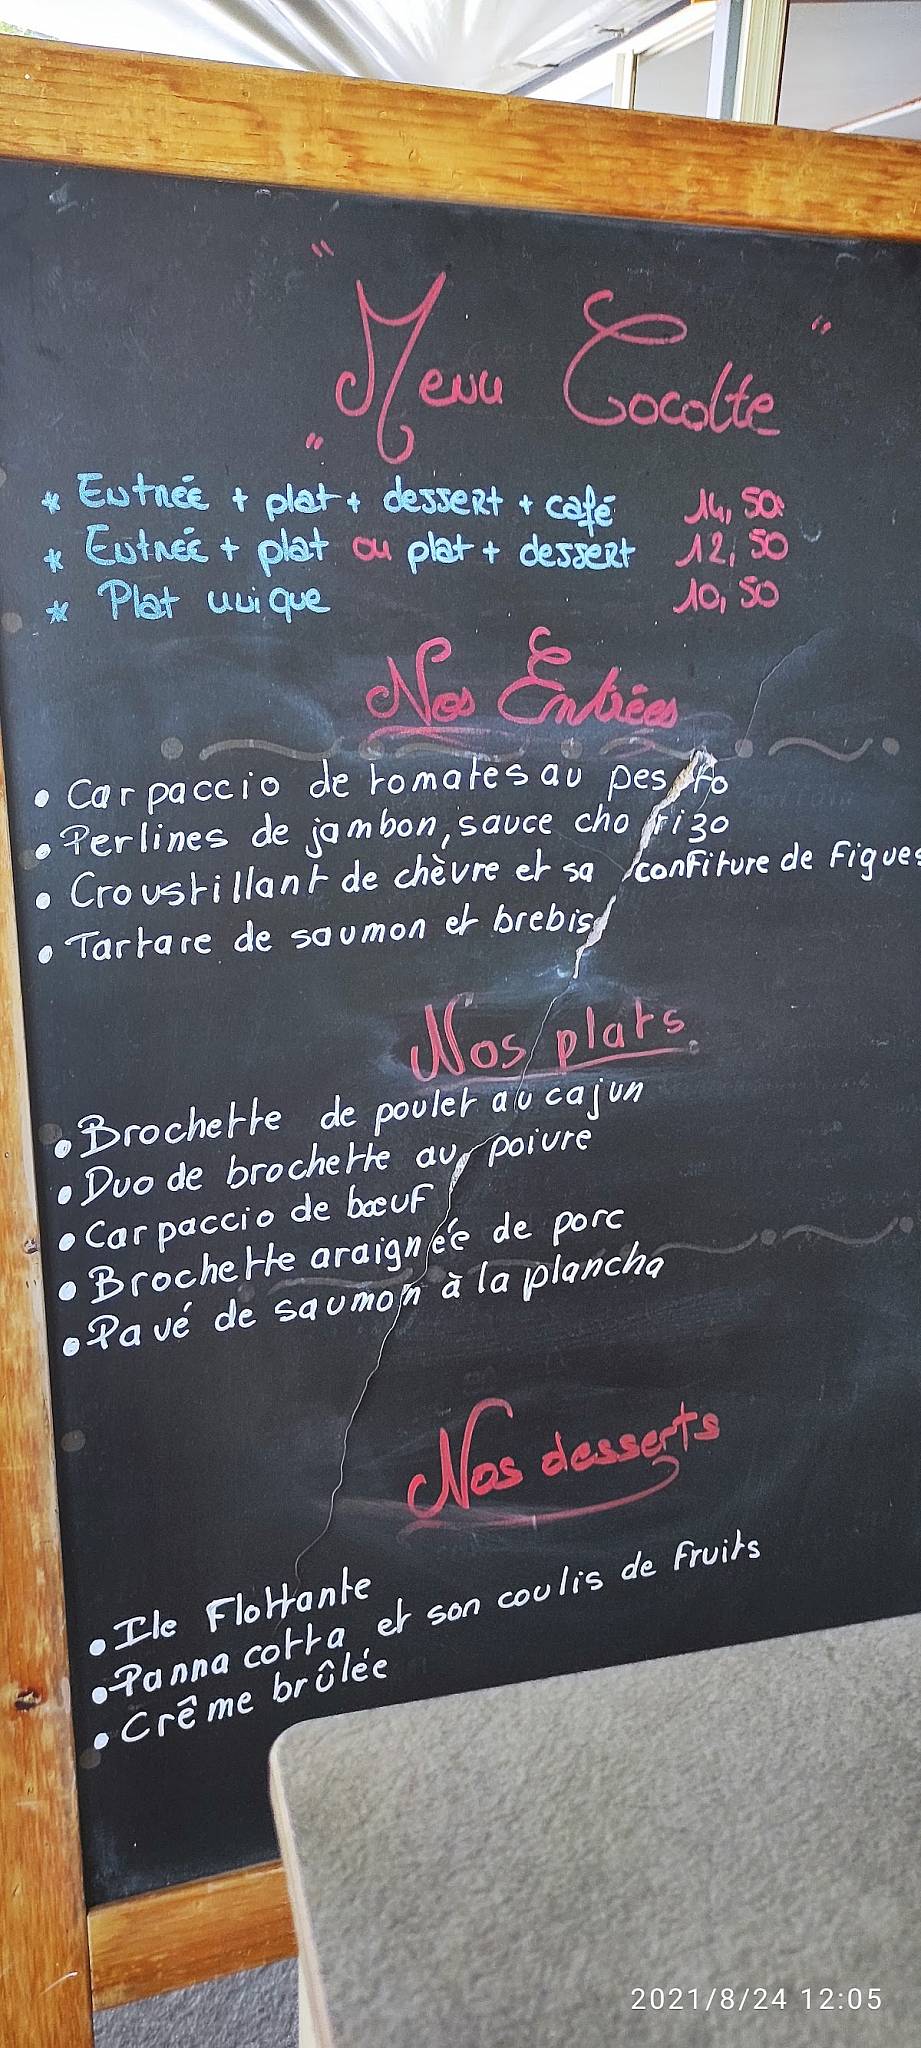 " Menu Cocotte "
"
* Entrée + plat + dessert + café 14,50
* Entrée + plat ou plat + dessert 12,50
* Plat unique 10,50
Nos Entrées
• Carpaccio de tomates au pesto
• Perlines de jambon, sauce chorizo
• Croustillant de chèvre et sa confiture de Figues
• Tartare de saumon et brebis
Nos plats
• Brochette de poulet au cajun
• Duo de brochette au poivre
• Carpaccio de bœuf
• Brochette araignée de porc
• Pavé de saumon à la plancha
Nos desserts
• Ile Flottante
• Panna cotta et son coulis de fruits
• Crême brûlée
2021/8/24 12:05